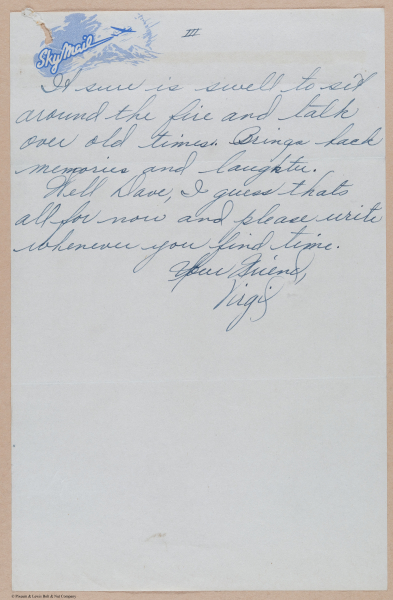 III
SkyMail
It sure is swell to sit
around the fire and talk
over old times. Brings back
memories and laughter.
Well Dave, I guess thats
all for now and please write
whenever you find time.
Your Friend,
Virgil